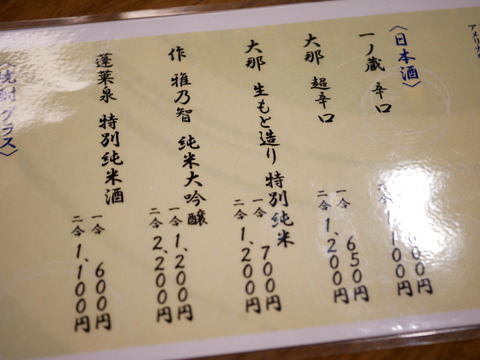 アメリカ
〈日本酒〉
一ノ蔵 辛口
大那 超辛口
一合 650円
二合 1,200円
大那 生もと造り 特別純米
一合 700円
二合 1,200円
作 雅乃智 純米大吟醸
一合 1,200円
二合 2,200円
蓬莱泉 特別純米酒
一合 600円
二合 1,100円
〈焼酎グラス〉